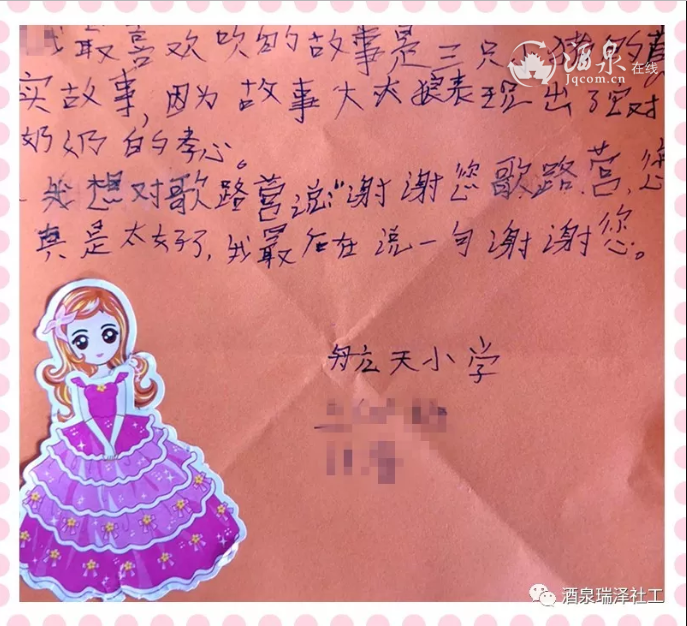 我最喜欢吹的故事是三只小猪的真
实故事,因为故事大灰狼表现出了它对
奶奶的孝心。
我想对歌路营说:“谢谢您歌路营,您
真是太好了,我最后在说一句谢谢您。
航天小学
酒泉在线
Jqcom.cn
酒泉瑞泽社工